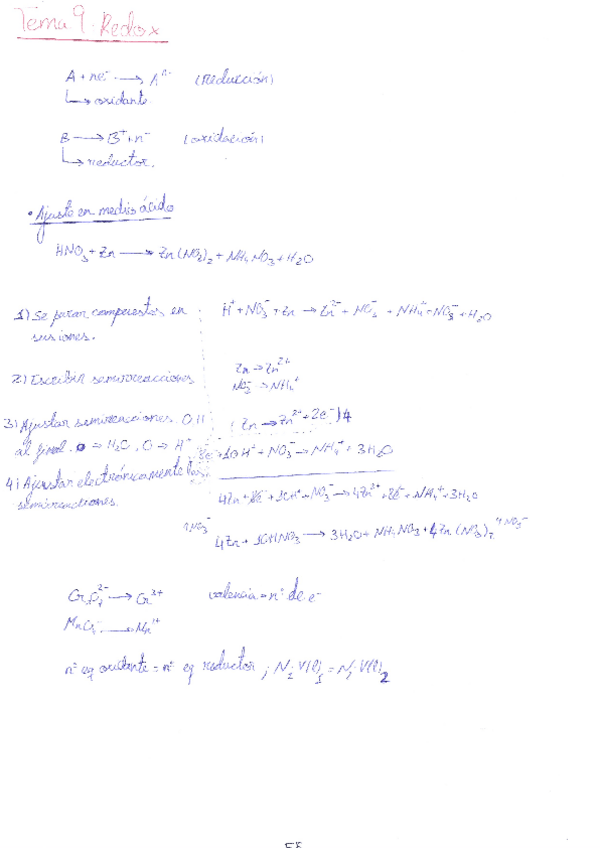 Tema 9. Redox
A + ne⁻ → Aⁿ⁻ (Reducción)
↳ oxidante
B → B⁺ + n⁻ (oxidación)
↳ reductor.
• Ajuste en medio ácido
HNO₃ + Zn → Zn(NO₃)₂ + NH₄NO₃ + H₂O
1) Se paran compuestos en
sus iones.
H⁺ + NO₃⁻ + Zn → Zn²⁻ + NO₃⁻ + NH₄⁺ + NO₃⁻ + H₂O
2) Escribir semirreacciones
Zn → Zn²⁺
NO₃⁻ → NH₄⁺
3) Ajustar semirreacciones. O, H
al final. O → H₂O, O → H⁺
(Zn → Zn²⁺ + 2e⁻) 4
8e⁻ + 10H⁺ + NO₃⁻ → NH₄⁺ + 3H₂O
4) Ajustar electrónicamente las
semirreacciones.
4Zn + 8e⁻ + 10H⁺ + NO₃⁻ → 4Zn²⁺ + 8e⁻ + NH₄⁺ + 3H₂O
9NO₃⁻
4Zn + 10HNO₃ → 3H₂O + NH₄NO₃ + 4Zn(NO₃)₂ 9NO₃⁻
Cr₂O₇²⁻ → Cr³⁺ valencia = nº de e⁻
nº eq oxidante = nº eq reductor ; N₁ V(l)₁ = N₂ V(l)₂